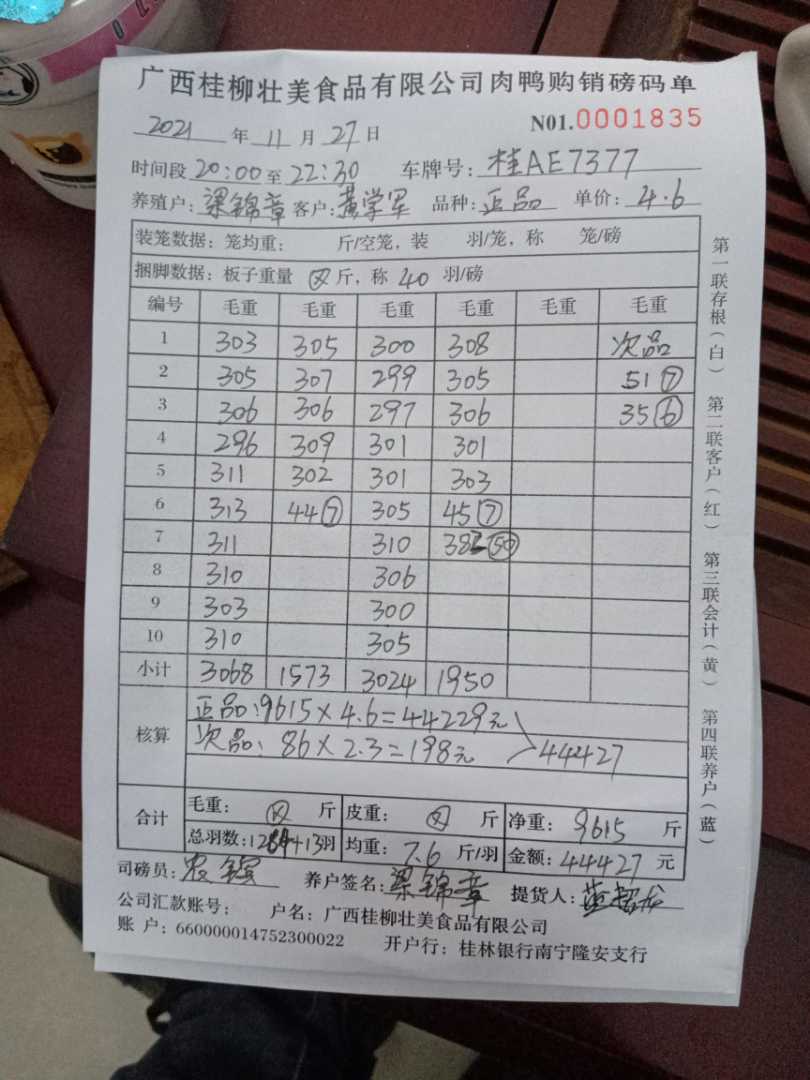 广西桂柳壮美食品有限公司肉鸭购销磅码单
2021 年 11 月 27 日 N01.0001835
时间段 20:00 至 22:30 车牌号: 桂AE7377
养殖户: 梁锦章 客户: 黄学军 品种: 正品 单价: 4.6
装笼数据: 笼均重: 斤/空笼, 装 羽/笼, 称 笼/磅
捆脚数据: 板子重量 斤, 称 40 羽/磅
编号 毛重 毛重 毛重 毛重 毛重 毛重
1 303 305 300 308 次品
2 305 307 299 305 51⑦
3 306 306 297 306 35⑥
4 296 309 301 301
5 311 302 301 303
6 313 44⑦ 305 45⑦
7 311 310 382㊿
8 310 306
9 303 300
10 310 305
小计 3068 1573 3024 1950
核算
正品:9615×4.6=44229元
次品: 86×2.3=198元 44427
合计 毛重: 斤 皮重: 斤 净重: 9615 斤
总羽数: 羽 均重: 7.6 斤/羽 金额: 44427 元
司磅员: 养户签名: 梁锦章 提货人:
公司汇款账号: 户名: 广西桂柳壮美食品有限公司
账 户: 660000014752300022 开户行: 桂林银行南宁隆安支行
第一联存根(白) 第二联客户(红) 第三联会计(黄) 第四联养户(蓝)